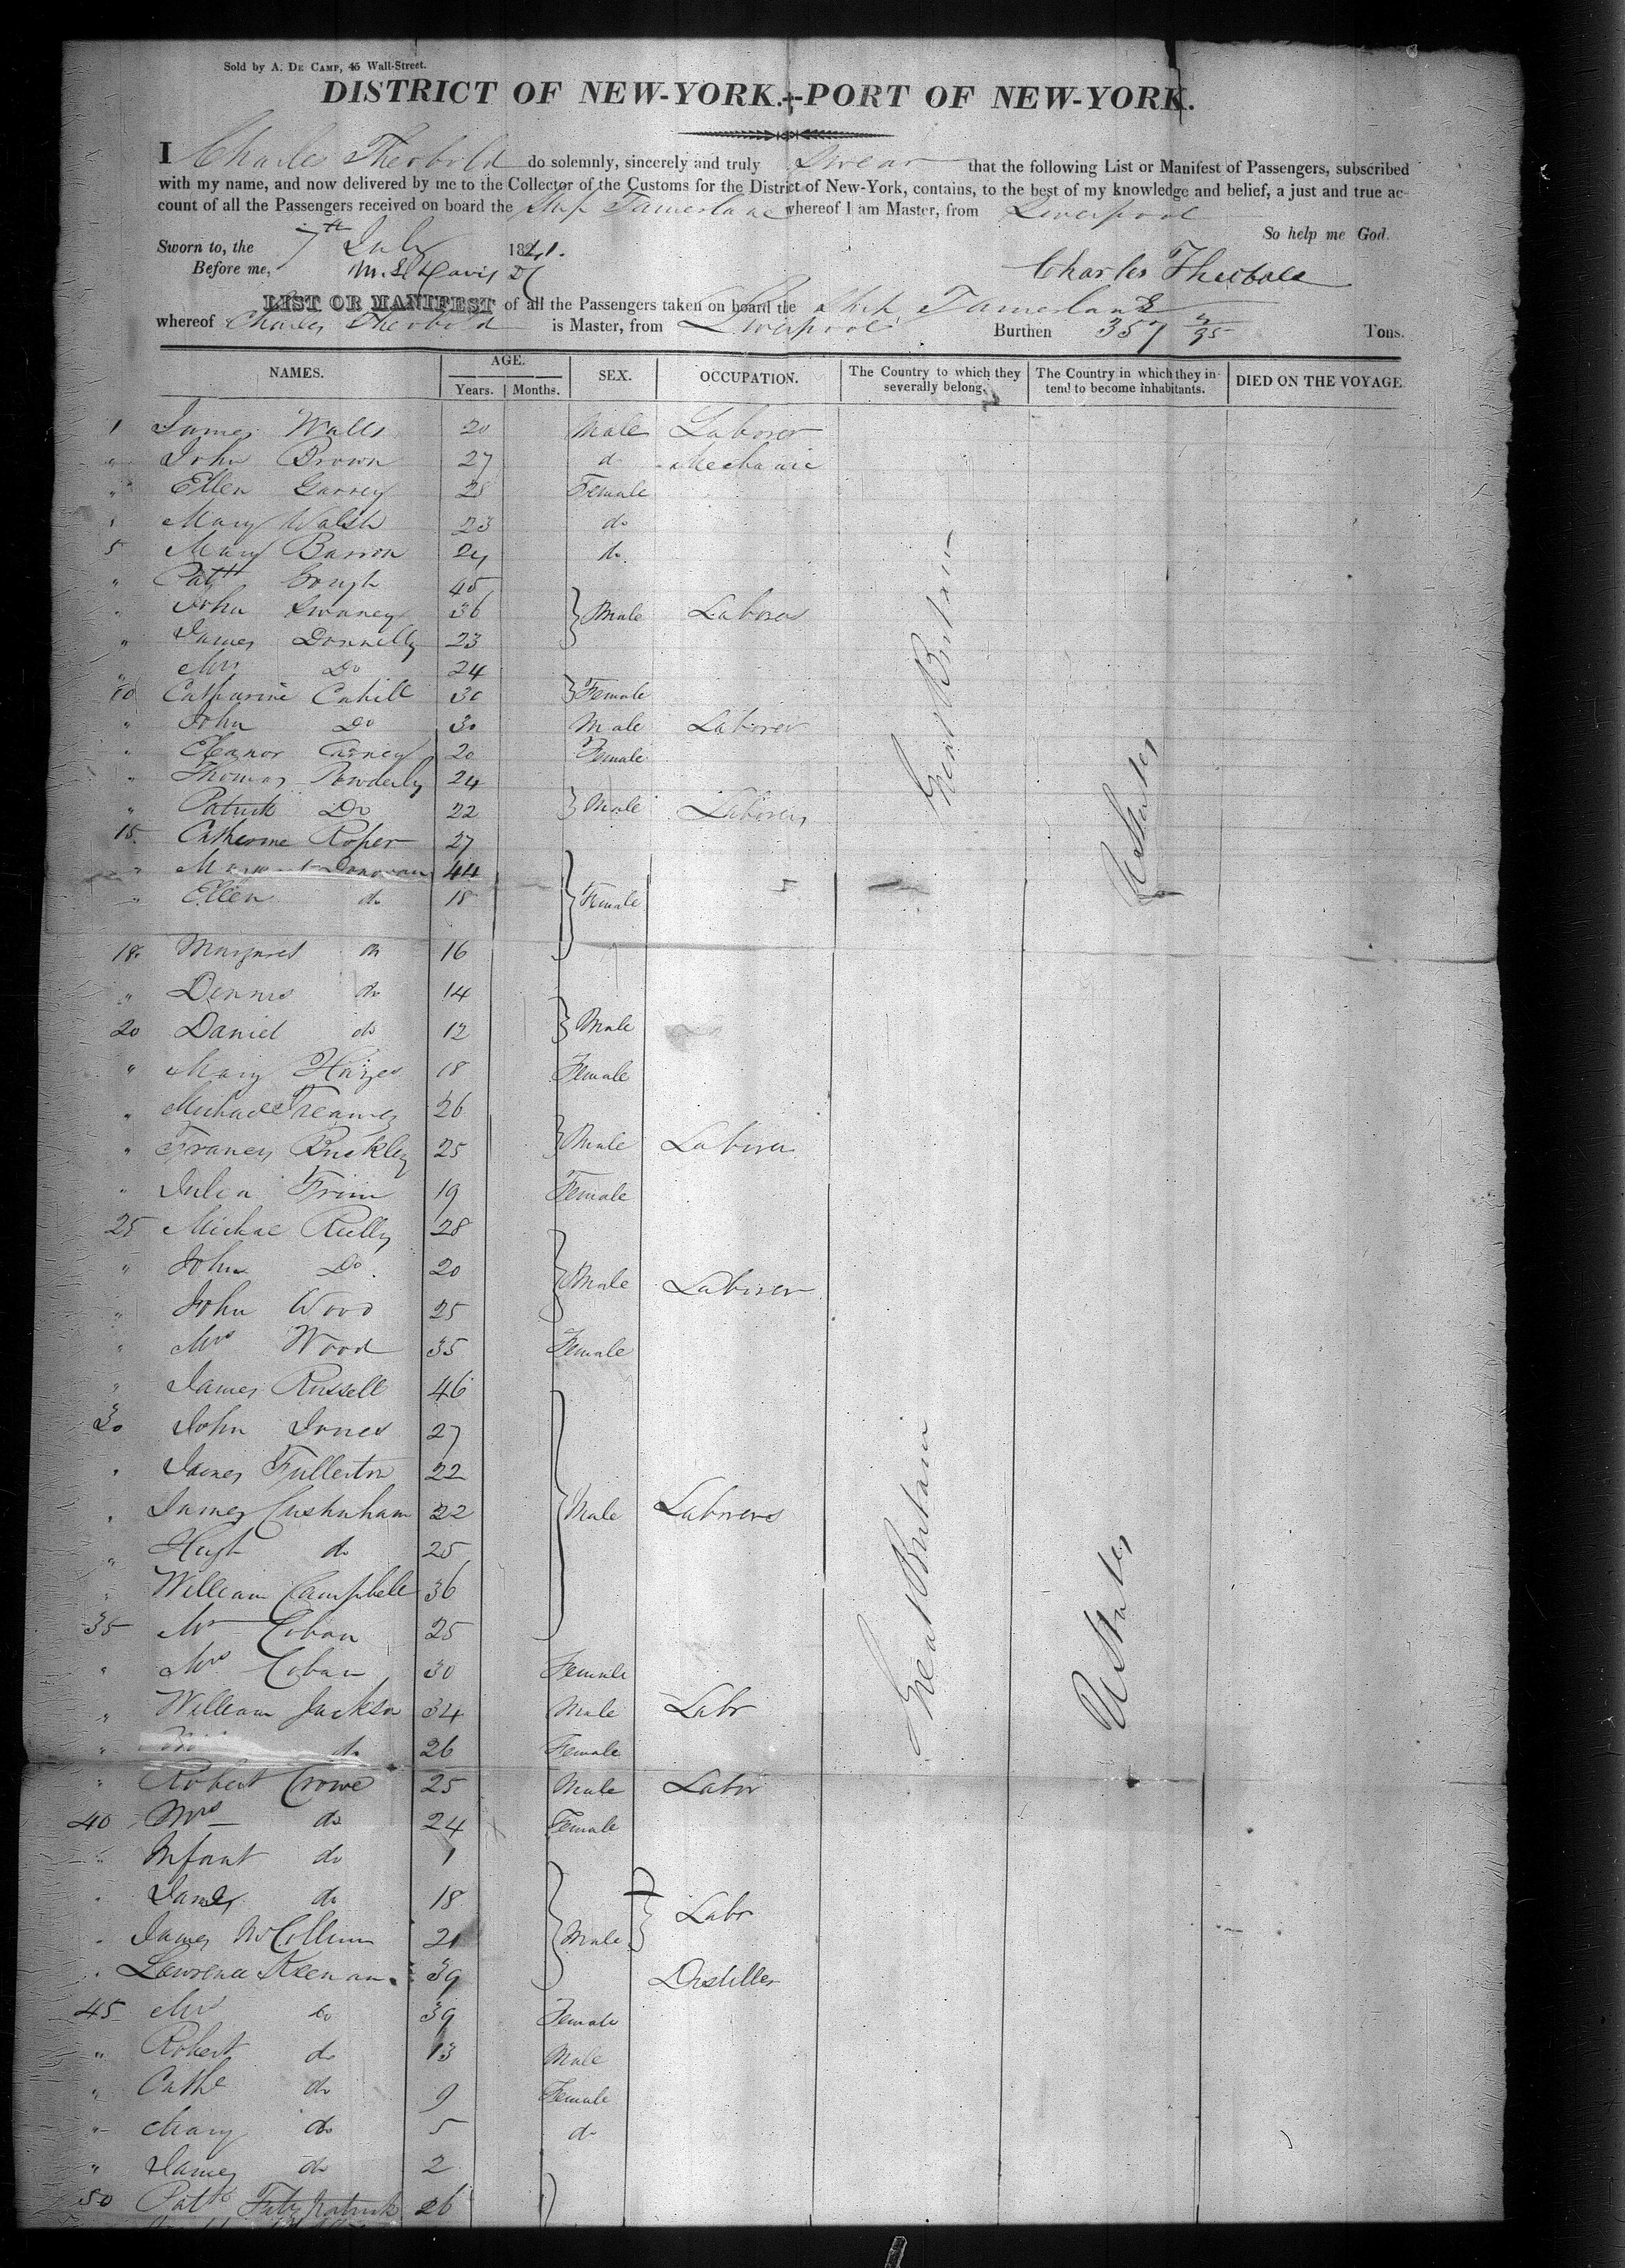 Sold by A. DE CAMP, 45 Wall-Street.
DISTRICT OF NEW-YORK.--PORT OF NEW-YORK.
I Charles Theobold do solemnly, sincerely and truly Swear that the following List or Manifest of Passengers, subscribed
with my name, and now delivered by me to the Collector of the Customs for the District of New-York, contains, to the best of my knowledge and belief, a just and true ac-
count of all the Passengers received on board the Ship Tamerlane whereof I am Master, from Liverpool
So help me God.
Sworn to, the 7th July 1841.
Before me, Charles Theobald
LIST OR MANIFEST of all the Passengers taken on board the Ship Tamerlane
whereof Charles Theobold is Master, from Liverpool Burthen 357 /95 Tons.
NAMES. AGE. Years. Months. SEX. OCCUPATION. The Country to which they severally belong. The Country in which they in-tend to become inhabitants. DIED ON THE VOYAGE
1 James Walls 20 Male Laborer
" John Brown 27 do Mechanic
" Ellen Garvey 28 Female
" Mary Walsh 23 do
5 Mary Barron 24 do
" Patk Gough 45
" John Swaney 36 Male Laborers
" James Donnelly 23
" Mrs Do 24
10 Catharine Cahill 30 Female
" John Do 30 Male Laborer
" Eleanor Carney 20 Female
" Thomas Powderly 24
" Patrick Do 22 Male Laborers
15 Catherine Roper 27
" Donovan 44
" Ellen do 18 Female
18 Margaret do 16
" Dennis do 14
20 Daniel do 12 Male
" Mary Hayes 18 Female
" Michael 26
" Francis Buckley 25 Male Laborer
" Julia 19 Female
25 Michae Reilly 28
" John Do 20 Male Laborer
" John Wood 25
" Mrs Wood 35 Female
" James Russell 46
30 John Jones 27
" James Fullerton 22
" James Cushnham 22 Male Laborers
" Hugh do 25
" William Campbell 36
35 Mr Coban 25
" Mrs Coban 30 Female
" William Jackson 34 Male Labr
" do 26 Female
" Robert Crowe 25 Male Labor
40 Mrs do 24 Female
" Infant do 1
" James do 18 Labr
" James McCollum 21 Male
" Lawrence Keenan 39 Distiller
45 Mrs do 39 Female
" Robert do 13 Male
" Cathe do 9 Female
" Mary do 5 do
" James do 2
50 Patk Fitzpatrick 26
Great Britain
U States
Great Britain
U States